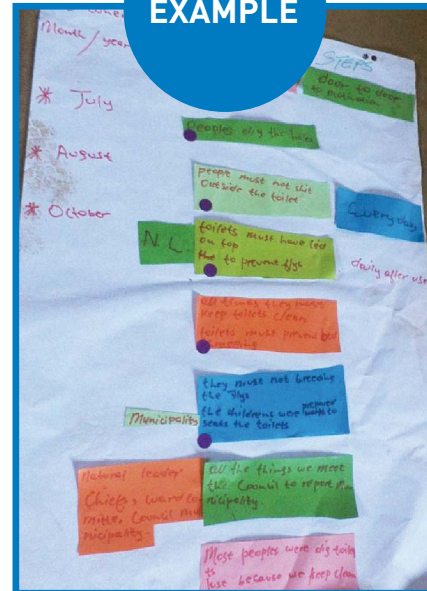 EXAMPLE
Month/year
STEPS
door to door
to motivation
* July
Peoples dig the holes
* August
people must not shit
outside the toilet
* October
Every day
N.L.
toilets must have lid
on top
to prevent flys
daily after use
all times they must
keep toilets clean
toilets must prevent bad
they must not breeding
the flys
prepared
the childrens were to
seats the toilets
Municipality
Natural leader
Chiefs, ward co
mitte, Council mu
nicipality.
all the things we meet
the Council to report mu
nicipality.
Most peoples were dig toile
ts
just because we keep clean